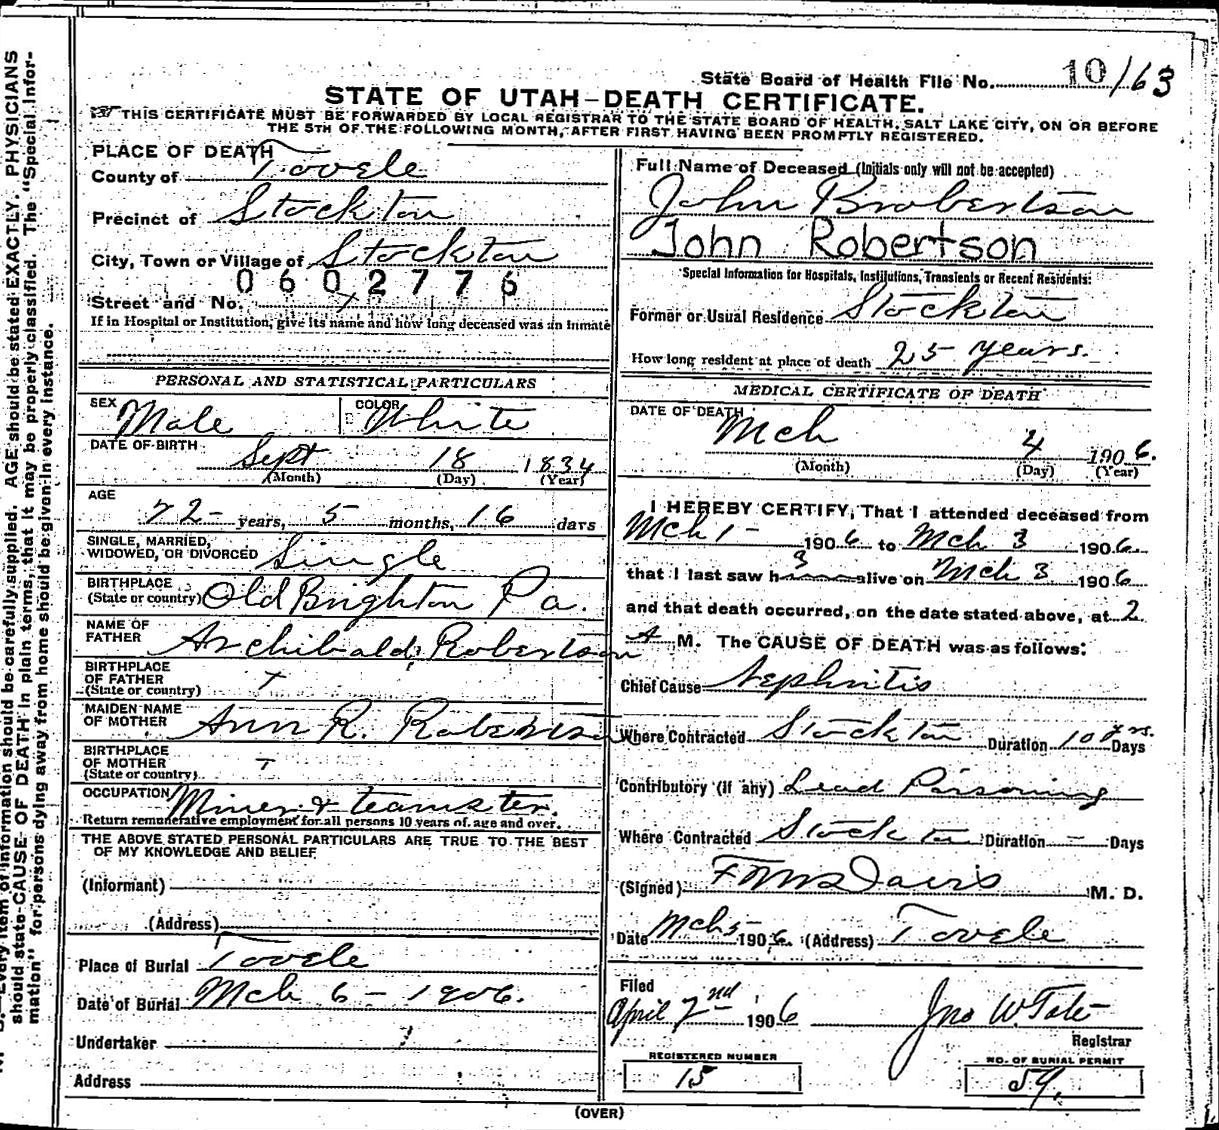 State Board of Health File No. 10163
STATE OF UTAH-DEATH CERTIFICATE.
THIS CERTIFICATE MUST BE FORWARDED BY LOCAL REGISTRAR TO THE STATE BOARD OF HEALTH, SALT LAKE CITY, ON OR BEFORE
THE 5TH OF THE FOLLOWING MONTH, AFTER FIRST HAVING BEEN PROMPTLY REGISTERED.
PLACE OF DEATH
County of Tooele
Precinct of Stockton
City, Town or Village of Stockton
0602776
Street and No.
If in Hospital or Institution, give its name and how long deceased was an inmate
PERSONAL AND STATISTICAL PARTICULARS
SEX Male COLOR White
DATE OF BIRTH Sept 18 1834
(Month) (Day) (Year)
AGE
72 years, 5 months, 16 days
SINGLE, MARRIED,
WIDOWED, OR DIVORCED Single
BIRTHPLACE
(State or country) Old Brighton Pa.
NAME OF
FATHER Archibald Robertson
BIRTHPLACE
OF FATHER
(State or country)
MAIDEN NAME
OF MOTHER Ann R. Robertson
BIRTHPLACE
OF MOTHER
(State or country)
OCCUPATION Miner & teamster.
Return remunerative employment for all persons 10 years of age and over.
THE ABOVE STATED PERSONAL PARTICULARS ARE TRUE TO THE BEST
OF MY KNOWLEDGE AND BELIEF
(Informant)
(Address)
Place of Burial Tooele
Date of Burial Mch 6 - 1906.
Undertaker
Address
Full Name of Deceased (Initials only will not be accepted)
John Robertson
John Robertson
Special Information for Hospitals, Institutions, Transients or Recent Residents:
Former or Usual Residence Stockton
How long resident at place of death 25 years.
MEDICAL CERTIFICATE OF DEATH
DATE OF DEATH Mch 4 1906.
(Month) (Day) (Year)
I HEREBY CERTIFY, That I attended deceased from
Mch 1 - 1906 to Mch 3 1906
that I last saw h alive on Mch 3 1906
and that death occurred, on the date stated above, at 2
A M. The CAUSE OF DEATH was as follows:
Chief Cause Nephritis
Where Contracted Stockton Duration 10 yrs. Days
Contributory (if any) Lead Poisoning
Where Contracted Stockton Duration - Days
(Signed) Davis M. D.
Date Mch 5 1906. (Address) Tooele
Filed
April 2nd, 1906 Jno W. Tate
Registrar
REGISTERED NUMBER
15
NO. OF BURIAL PERMIT
59.
(OVER)
Every item of information should be carefully supplied. AGE should be stated EXACTLY. PHYSICIANS
should state CAUSE OF DEATH in plain terms, that it may be properly classified. The "Special Infor-
mation" for persons dying away from home should be given in every instance.